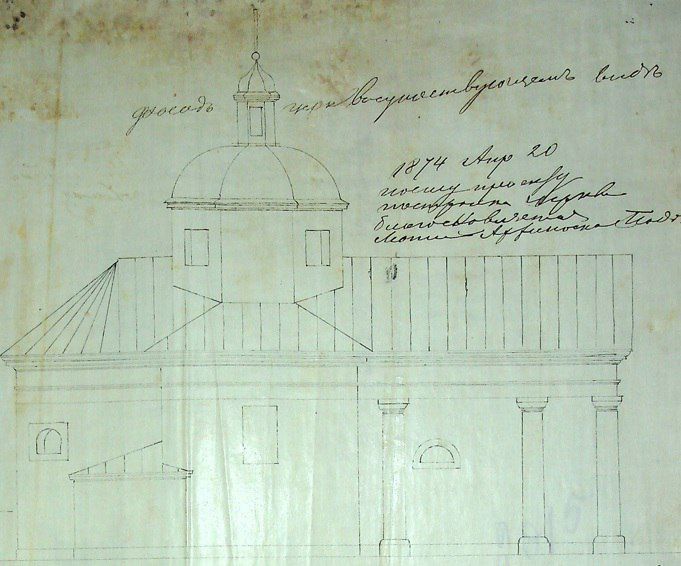 фасадъ церк въ существующемъ видѣ
1874 Апр 20
по сему проекту
постройка Церкви
благословляется